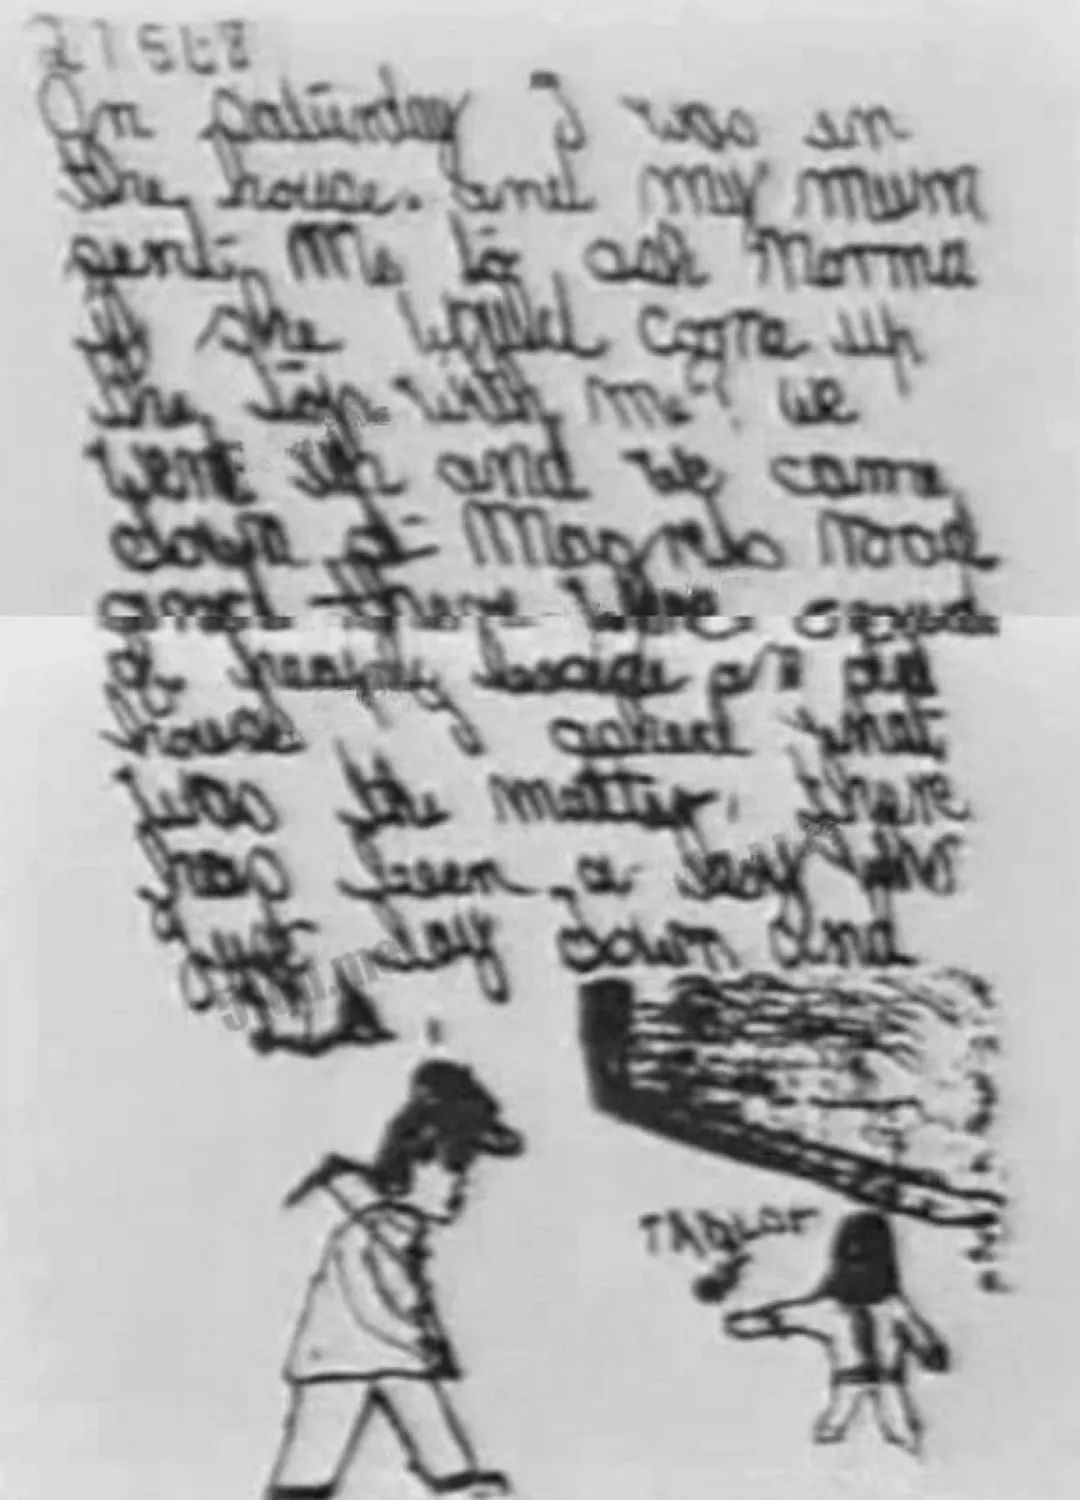 27 5 68
On saturday I was in
the house. and my mum
sent Me to ask Norma
if she would come up
the top with me? we
went up and we came
down at Magrets Road
and there were crowds
of beside an old
house asked what
was the matter. there
has been a boy who
Just lay down and
TABLOT